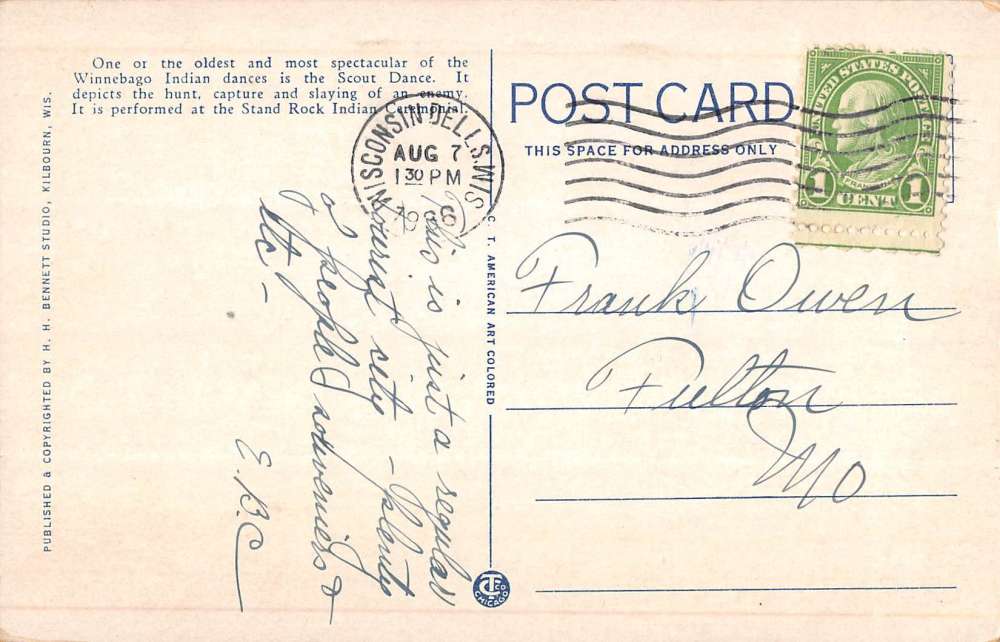 One of the oldest and most spectacular of the
Winnebago Indian dances is the Scout Dance. It
depicts the hunt, capture and slaying of an enemy.
It is performed at the Stand Rock Indian Ceremonial.
PUBLISHED & COPYRIGHTED BY H. H. BENNETT STUDIO, KILBOURN, WIS.
This is just a regular
tourist city - plenty
of people souveniers &
etc -
E.B.C
C. T. AMERICAN ART COLORED
CT CO CHICAGO
WISCONSIN DELLS, WIS.
AUG 7
1 30 PM
POST CARD
THIS SPACE FOR ADDRESS ONLY
UNITED STATES POSTAGE
FRANKLIN
1 CENT 1
Frank Owen
Fulton
Mo